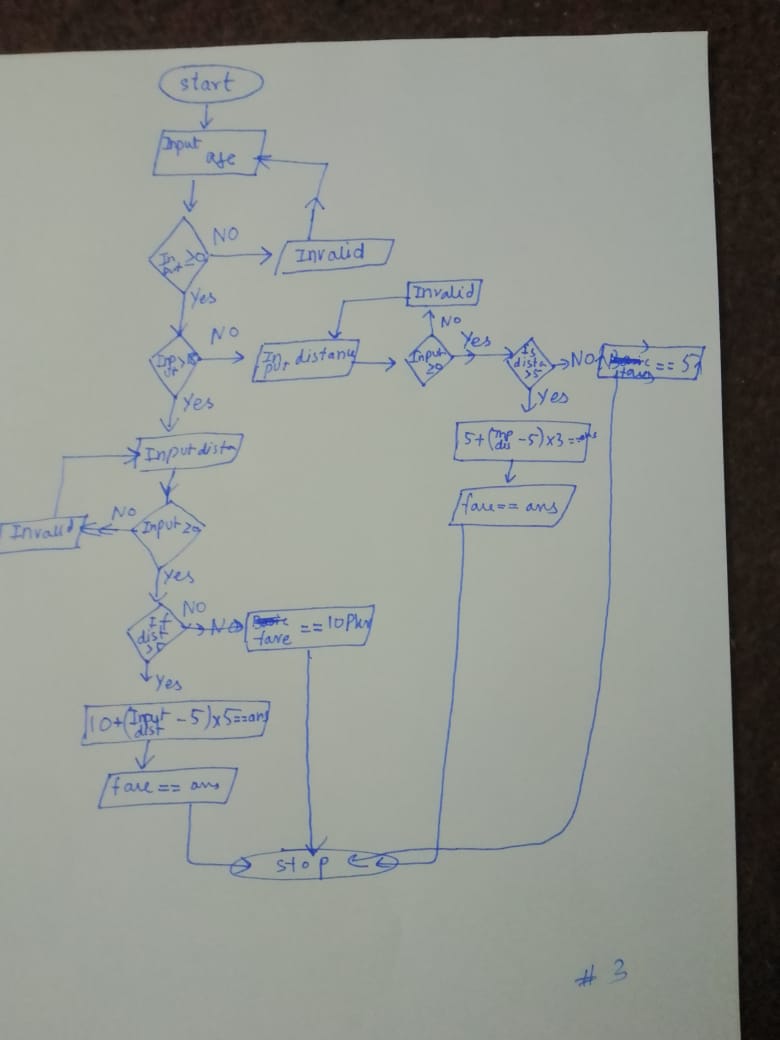 start
Input
age
In
put ≥0
NO
Invalid
Yes
NO
Input distance
Invalid
NO
Input
≥0
Yes
Is
dista
>5
NO
fare == 5
Yes
Yes
5+(Inp dis - 5)×3 == ans
fare == ans
Input dista
Invalid
NO
Input ≥0
Yes
If
dist
>5
NO
NO
fare == 10 Pkr
Yes
10+(Input dist - 5)×5 == ans
fare == ans
stop
# 3